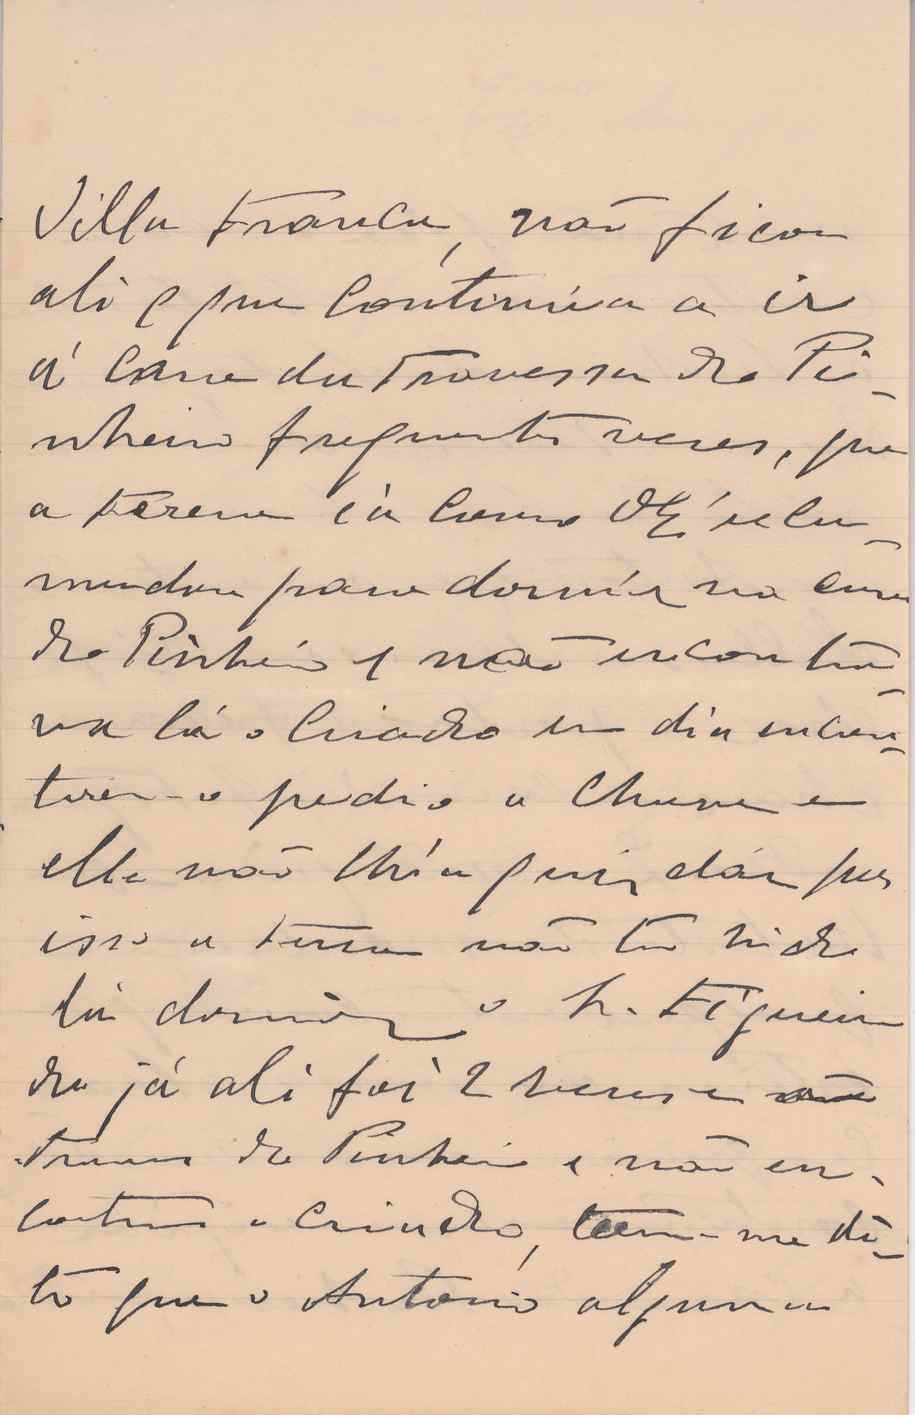 Villa Franca, não ficou
ali e que continúa a ir
á casa da Travessa do Pi-
nheiro frequentes veses, que
a Teresa ia como V. Ex.ª
mandou para dormir na casa
do Pinheiro e não encontra-
va lá o criado um dia encon-
trou-o pedio a chave e
elle não lh'a quiz dár por
isso a Teresa não tem hido
lá dormir, o Sr. Figueire
do já ali foi 2 veses a
Trava do Pinheiro e não en-
controu o criado, tem-me di-
to que o António alguma